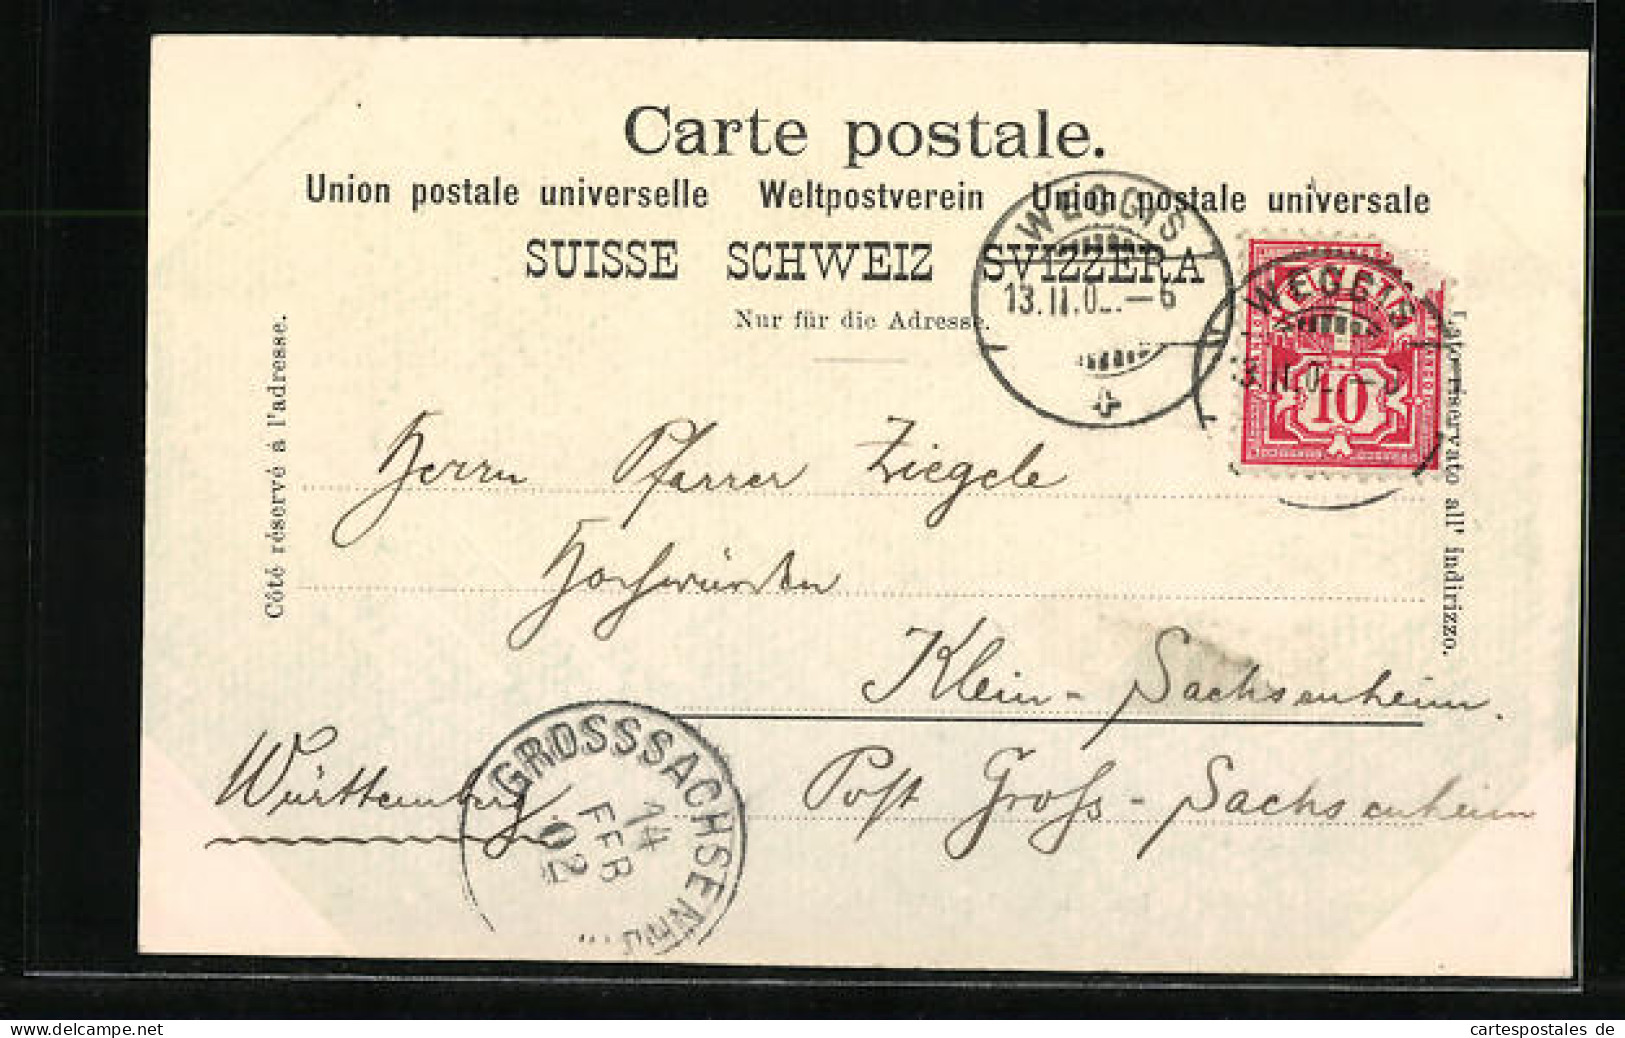 Carte postale.
Union postale universelle Weltpostverein Unione postale universale
SUISSE SCHWEIZ SVIZZERA
Nur für die Adresse.
Côté réservé à l'adresse.
Lato riservato all' indirizzo.
WEGGIS
13.II.02.–6
WEGGIS
10
Herrn Pfarrer Ziegele
Hochwürden
Klein-Sachsenheim.
Württemberg
Post Groß-Sachsenheim
GROSSSACHSENH
14
FEB
02
cartespostales de